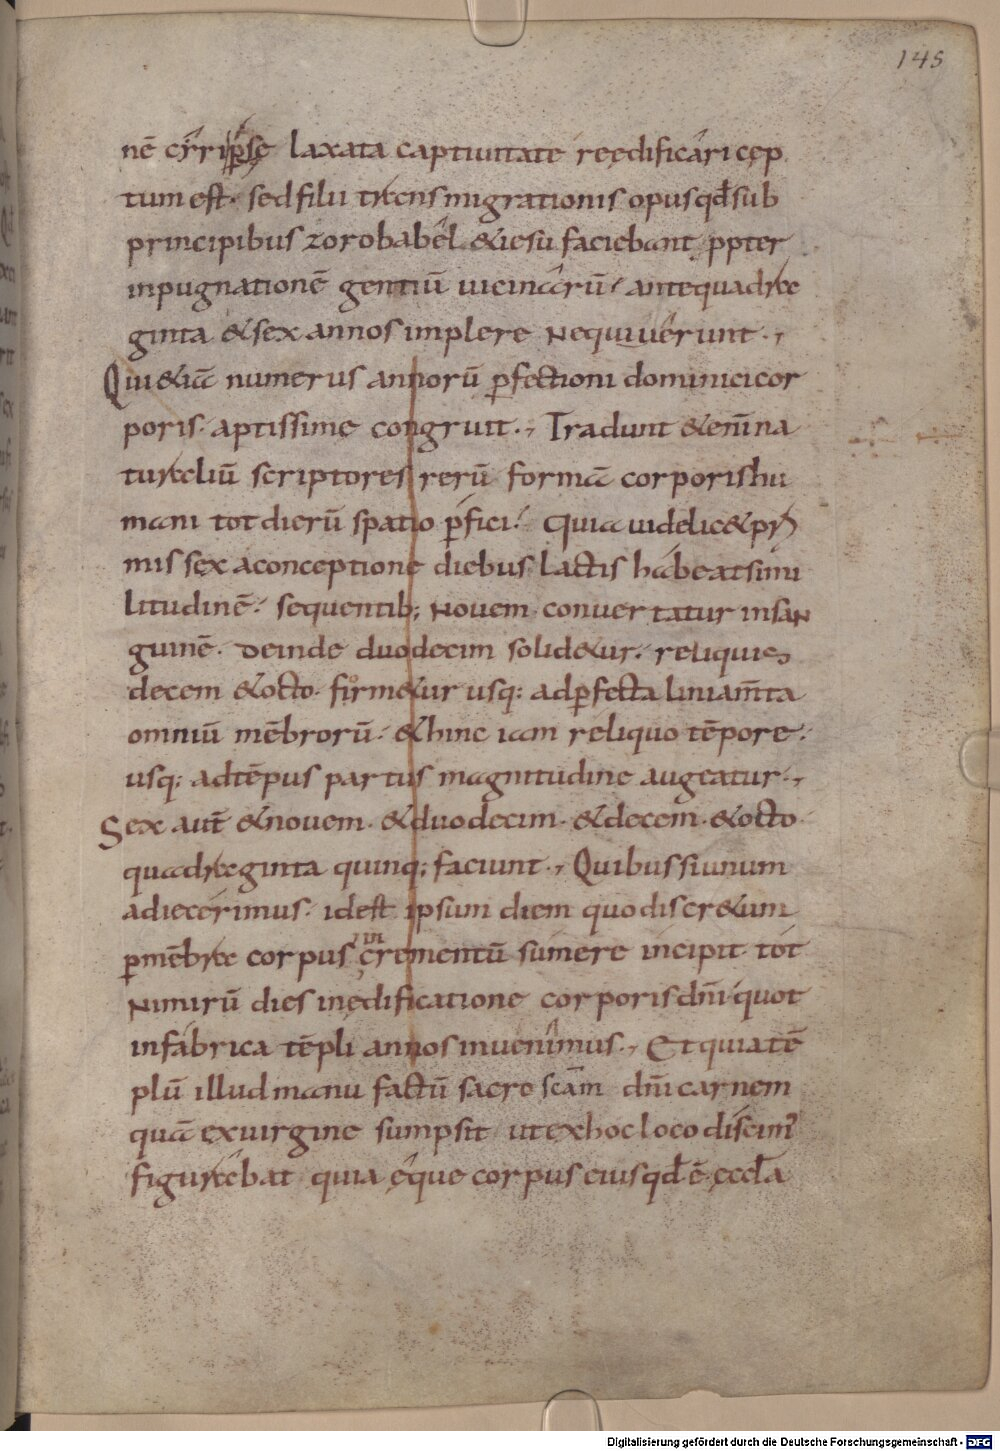 145
nē cyri ꝑsę laxata captiuitate reędificari cęp
tum est· sed filii transmigrationis opus qđ sub
principibus zorobabel & iesu faciebant ppter
inpugnationē gentiū uicinarū· ante quadra
ginta & sex annos implere nequiuerunt·,
Qui &iā numerus annorū ꝑfectioni dominici cor
poris· aptissime congruit·, Tradunt & eni͞m na
turaliū scriptores rerū formā corporis hu
mani tot dierū spatio ꝑfici· Quia uidelic& pri
mis sex a conceptione diebus lactis habeat simi
litudinē· sequentib; novem convertatur in san
guinē· deinde duodecim solid&ur· reliquis
decem & octo· firm&ur usq; ad ꝑfecta liniam̄ta
omniū mēbrorū· & hinc iam reliquo tēpore·
usq; ad tēpus partus magnitudine augeatur·,
Sex aut̄ & novem· & duodecim· & decem· & octo
quadraginta quinq; faciunt·, Quibus si unum
adiecerimus· id est ipsum diem quo discr&um
ꝑ mēbra corpus in crementū sumere incipit tot
nimirū dies in ędificatione corporis dn̄i quot
in fabrica tēpli annos invenimus·, Et quia tē
plū illud manu factū sacro scām dn̄i carnem
quā ex uirgine sumpsit ut ex hoc loco discim᾽
figurabat quia ęque corpus eius qđ ē ęccła
Digitalisierung gefördert durch die Deutsche Forschungsgemeinschaft - DFG